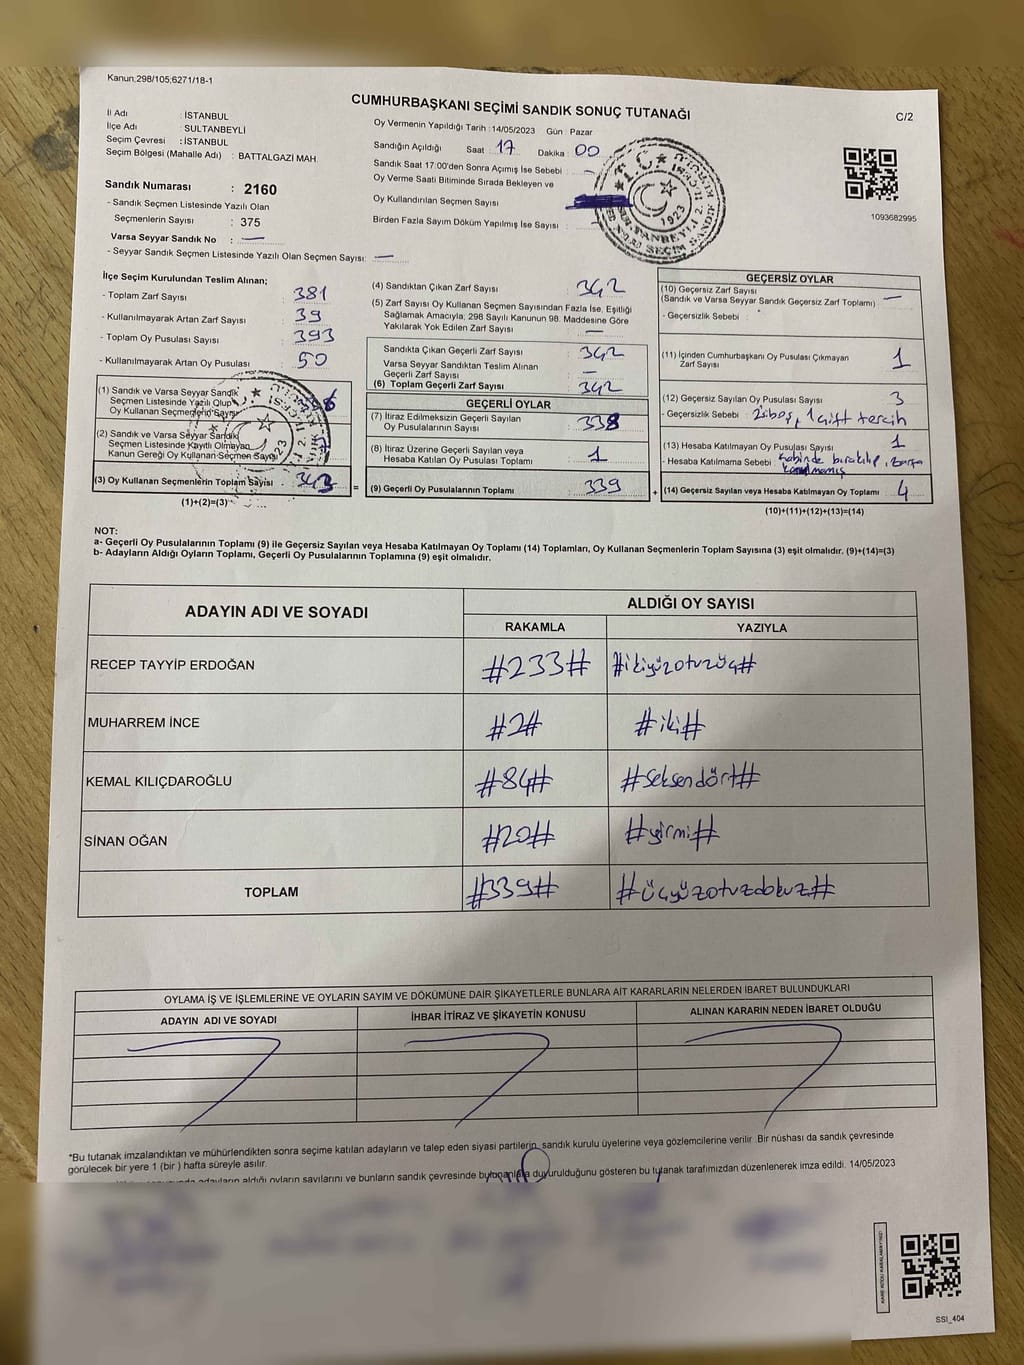 Kanun;298/105;6271/18-1
CUMHURBAŞKANI SEÇİMİ SANDIK SONUÇ TUTANAĞI
C/2
İl Adı : İSTANBUL
İlçe Adı : SULTANBEYLİ
Seçim Çevresi : İSTANBUL
Seçim Bölgesi (Mahalle Adı) : BATTALGAZİ MAH.
Oy Vermenin Yapıldığı Tarih : 14/05/2023 Gün : Pazar
Sandığın Açıldığı Saat : 17 Dakika : 00
Sandık Saat 17:00'den Sonra Açımış İse Sebebi : —
Oy Verme Saati Bitiminde Sırada Bekleyen ve
Oy Kullandırılan Seçmen Sayısı
Birden Fazla Sayım Döküm Yapılmış İse Sayısı :
1093682995
Sandık Numarası : 2160
- Sandık Seçmen Listesinde Yazılı Olan
Seçmenlerin Sayısı : 375
Varsa Seyyar Sandık No : —
- Seyyar Sandık Seçmen Listesinde Yazılı Olan Seçmen Sayısı: —
T.C.
1923
İlçe Seçim Kurulundan Teslim Alınan;
- Toplam Zarf Sayısı : 381
- Kullanılmayarak Artan Zarf Sayısı : 39
- Toplam Oy Pusulası Sayısı : 393
- Kullanılmayarak Artan Oy Pusulası : 50
(1) Sandık ve Varsa Seyyar Sandık
Seçmen Listesinde Yazılı Olup
Oy Kullanan Seçmenlerin Sayısı
(2) Sandık ve Varsa Seyyar Sandık
Seçmen Listesinde Kayıtlı Olmayan
Kanun Gereği Oy Kullanan Seçmen Sayısı
(3) Oy Kullanan Seçmenlerin Toplam Sayısı : 343
(1)+(2)=(3)
(4) Sandıktan Çıkan Zarf Sayısı : 342
(5) Zarf Sayısı Oy Kullanan Seçmen Sayısından Fazla İse, Eşitliği
Sağlamak Amacıyla; 298 Sayılı Kanunun 98. Maddesine Göre
Yakılarak Yok Edilen Zarf Sayısı : —
Sandıkta Çıkan Geçerli Zarf Sayısı : 342
Varsa Seyyar Sandıktan Teslim Alınan
Geçerli Zarf Sayısı : —
(6) Toplam Geçerli Zarf Sayısı : 342
GEÇERLİ OYLAR
(7) İtiraz Edilmeksizin Geçerli Sayılan
Oy Pusulalarının Sayısı : 338
(8) İtiraz Üzerine Geçerli Sayılan veya
Hesaba Katılan Oy Pusulası Toplamı : 1
= (9) Geçerli Oy Pusulalarının Toplamı : 339 +
GEÇERSİZ OYLAR
(10) Geçersiz Zarf Sayısı
(Sandık ve Varsa Seyyar Sandık Geçersiz Zarf Toplamı) —
- Geçersizlik Sebebi :
(11) İçinden Cumhurbaşkanı Oy Pusulası Çıkmayan
Zarf Sayısı 1
(12) Geçersiz Sayılan Oy Pusulası Sayısı 3
- Geçersizlik Sebebi : 2 si boş, 1 çift tercih
(13) Hesaba Katılmayan Oy Pusulası Sayısı 1
- Hesaba Katılmama Sebebi kabinde bırakılıp, zarfa
konulmamış
(14) Geçersiz Sayılan veya Hesaba Katılmayan Oy Toplamı 4
(10)+(11)+(12)+(13)=(14)
NOT:
a- Geçerli Oy Pusulalarının Toplamı (9) ile Geçersiz Sayılan veya Hesaba Katılmayan Oy Toplamı (14) Toplamları, Oy Kullanan Seçmenlerin Toplam Sayısına (3) eşit olmalıdır. (9)+(14)=(3)
b- Adayların Aldığı Oyların Toplamı, Geçerli Oy Pusulalarının Toplamına (9) eşit olmalıdır.
ADAYIN ADI VE SOYADI
ALDIĞI OY SAYISI
RAKAMLA YAZIYLA
RECEP TAYYİP ERDOĞAN #233# #ikiyüzotuzüç#
MUHARREM İNCE #2# #iki#
KEMAL KILIÇDAROĞLU #84# #seksendört#
SİNAN OĞAN #20# #yirmi#
TOPLAM #339# #üçyüzotuzdokuz#
OYLAMA İŞ VE İŞLEMLERİNE VE OYLARIN SAYIM VE DÖKÜMÜNE DAİR ŞİKAYETLERLE BUNLARA AİT KARARLARIN NELERDEN İBARET BULUNDUKLARI
ADAYIN ADI VE SOYADI İHBAR İTİRAZ VE ŞİKAYETİN KONUSU ALINAN KARARIN NEDEN İBARET OLDUĞU
*Bu tutanak imzalandıktan ve mühürlendikten sonra seçime katılan adayların ve talep eden siyasi partilerin, sandık kurulu üyelerine veya gözlemcilerine verilir. Bir nüshası da sandık çevresinde
görülecek bir yere 1 (bir ) hafta süreyle asılır.
adayların aldığı oyların sayılarını ve bunların sandık çevresinde bulunanlara duyurulduğunu gösteren bu tutanak tarafımızdan düzenlenerek imza edildi. 14/05/2023
SSI_404